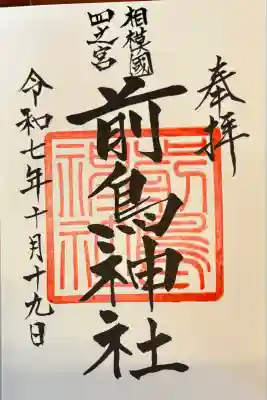 奉拝
相模國
四之宮
前鳥神社
令和七年十月十九日
前鳥神社